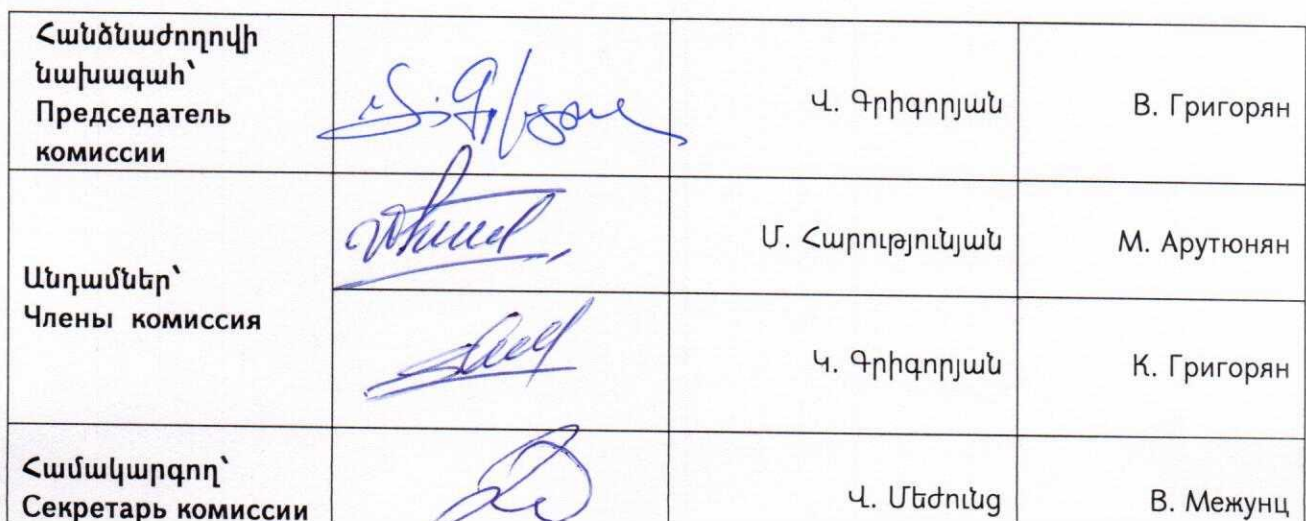 Հանձնաժողովի
նախագահ՝
Председатель
комиссии
Վ. Գրիգորյան
В. Григорян
Անդամներ՝
Члены комиссия
Մ. Հարությունյան
М. Арутюнян
Կ. Գրիգորյան
К. Григорян
Համակարգող՝
Секретарь комиссии
Վ. Մեժունց
В. Межунц